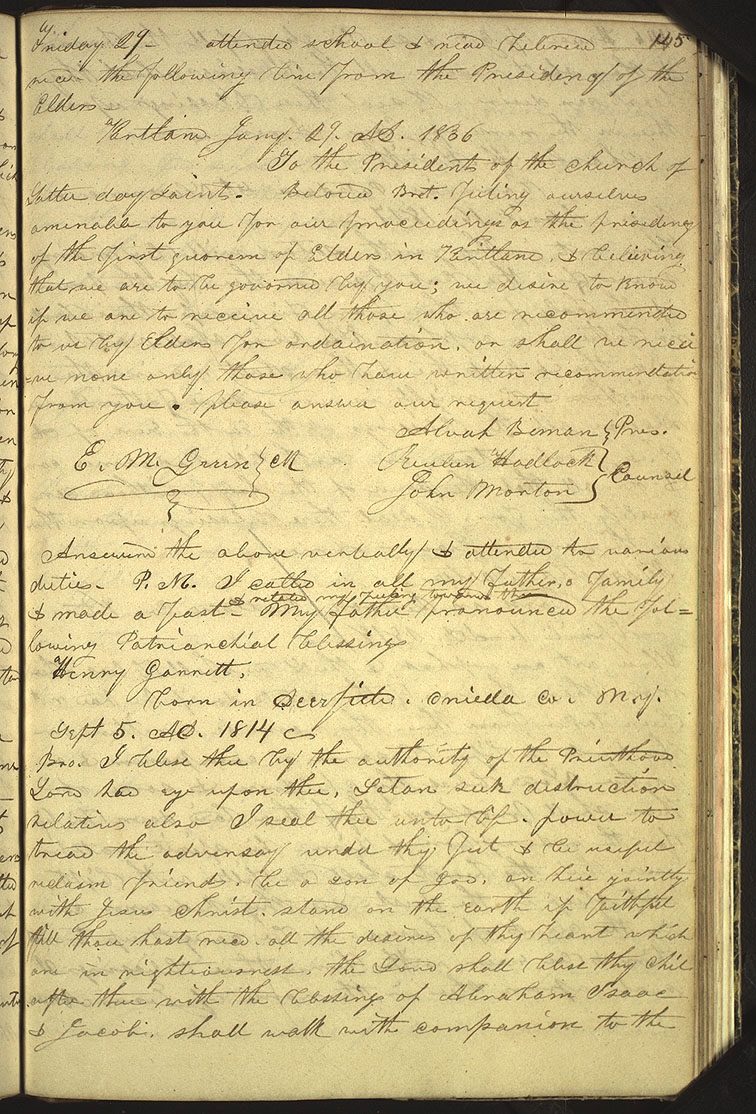 Friday 29- attended school & read hebrew 145
recd the following line from the Presidency of the
Elders
Kirtland Jany. 29. AD. 1836
To the Presidents of the church of
Latter day Saints- Beloved Bret. Feeling ourselves
amenable to you for our proceedings as the presidency
of the first quorem of Elders in Kirtland, & believing
that we are to be governed by you; we desire to know
if we are to receive all those who are recommended
to us by Elders for ordaination, or shall we recei
=ve none only those who have written recommendation
from you. please answer our request
Alvah Beman } Pres.
E. M. Green } Clk Reuben Hadlock } Counsel
John Morton
Answered the above verbally & attended to various
duties- P. M. I called in all my Father,s Family
& related my feelings towards them
& made a feast- My Father pronounced the fol=
lowing Patriarchial blessings
Henry Garrett,
born in Deerfield. Onieda Co. N.Y.
Sept 5. AD. 1814
Bro. I bless thee by the authority of the Priesthood
Lord had eye upon thee, Satan seek distruction
relatives also I seal thee unto life. power to
tread the adversay under thy feet & be useful
reclaim friends. be a son of God, an heir jointly
with Jesus Christ. stand on the earth if faithful
till thou hast recd. all the desires of thy heart which
are in righteousness, the Lord shall bless thy chil
after thee with the blessings of Abraham Isaac
& Jacob. shall walk with companion to the